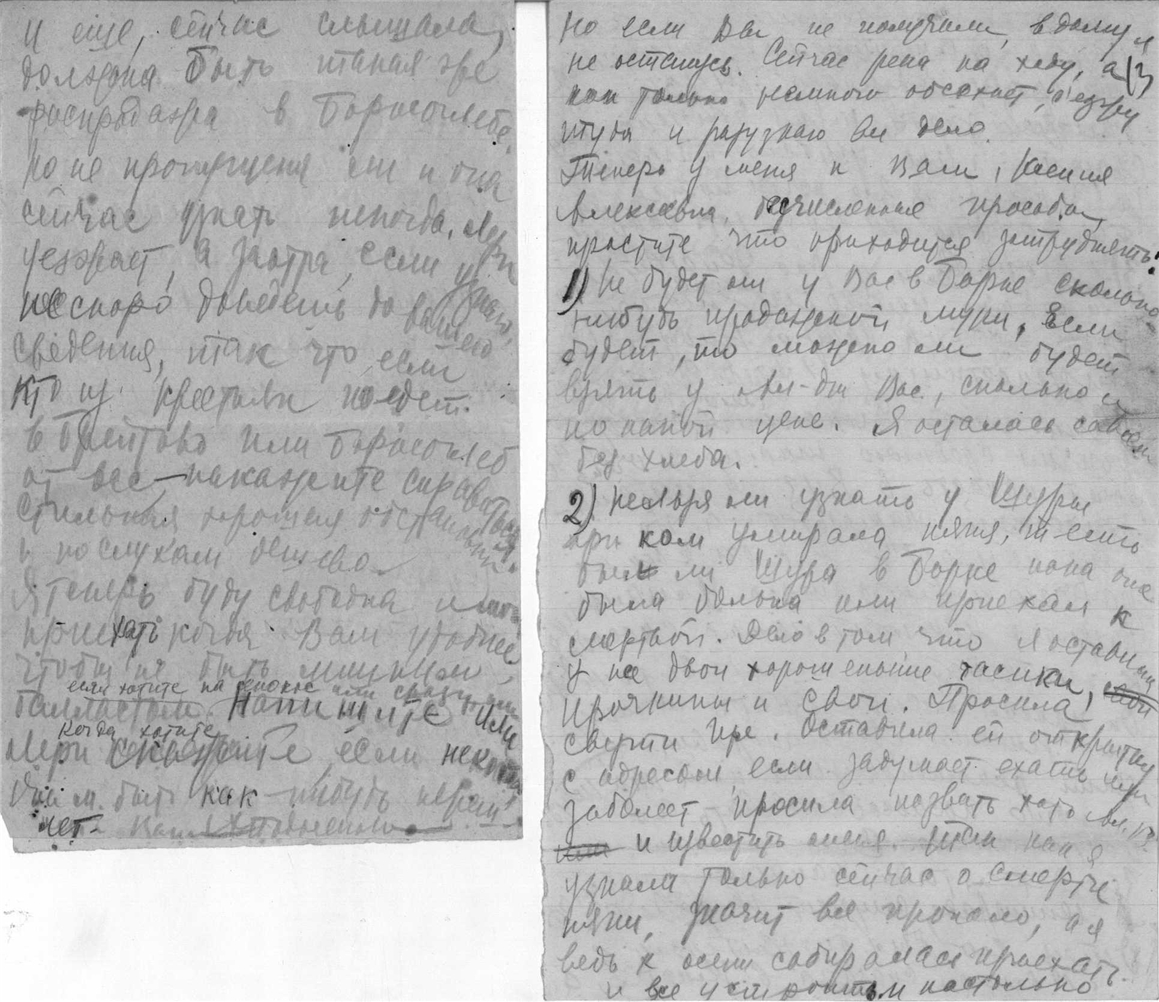 и еще, сейчас слышала,
должна быть такая же
распродажа в Борисоглебе,
но не пропущена ли и она
сейчас узнать некогда. Мери
уезжает, а завтра, если узнаю,
не скоро доведешь до вашего
сведения, так что если
кто из крестьян поедет
в Брейтово или Борисоглеб
от вас, накажите справиться.
Стильная хорошая обстановка
и по слухам дешево.
Я теперь буду свободна и могу
приехать когда Вам удобнее
чтобы не быть лишним
если хотите на сенокос или сразу
балластом. Напишите или
когда хотите
Мери скажите, если некогда
м. быть как-нибудь
чет Ваша
Но если Вы не получили, в долгу я
не останусь. Сейчас река на ходу, а
как только немного обсохнет, съезжу
туда и разузнаю все дело.
Теперь у меня к Вам, Ксения
Алексеевна, бесчисленные просьбы
простите что приходится затруднять:
1) Не будет ли у Вас в Борке сколько-
нибудь продажной муки. Если
будет, то можно ли будет
взять у Вас, сколько и
по какой цене. Я осталась совсем
без хлеба.
2) Нельзя ли узнать у Шуры
при ком умирала няня, т. есть
был ли Шура в Борке пока она
была больна или приехал к
мертвой. Дело в том что я оставила
у нее двои хорошенькие часики,
Ирочкины и свои. Просила,
оставила ей открытку
с адресом если задумает ехать или
заболеет, просила позвать хоть
и известить меня. Так как я
узнала только сейчас о смерти
няни, значит все пропало, а я
ведь к осени собиралась приехать
и все устроить и настолько